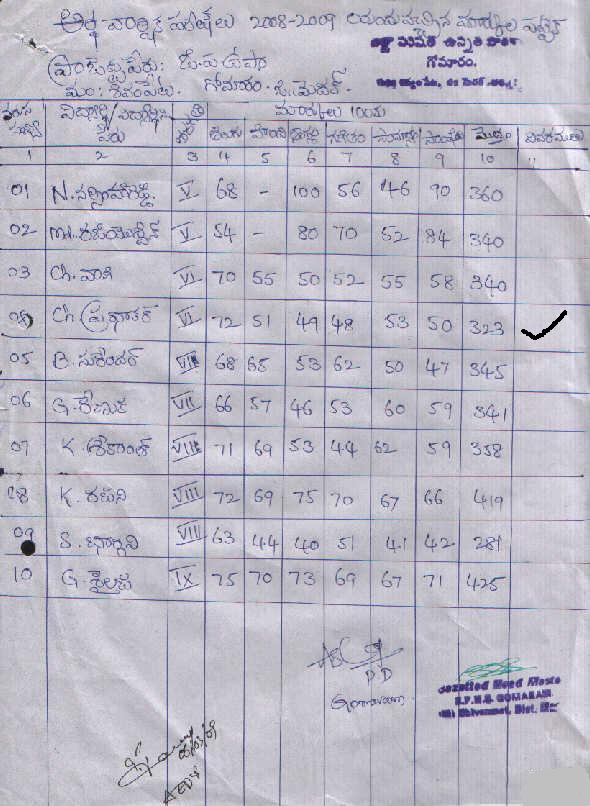 అర్థ వార్షిక పరీక్షలు 2008-2009 యందు వచ్చిన మార్కుల పట్టిక
జిల్లా పరిషత్ ఉన్నత పాఠశాల
గోమారం.
మం: శివంపేట. గోమారం. జి. మెదక్.
విద్యార్థి/విద్యార్థిని పేరు మార్కులు 100కు
తెలుగు హిందీ ఇంగ్లీషు గణితం సామాన్య సాంఘిక మొత్తం వివరములు
1 2 3 4 5 6 7 8 9 10 11
01 N. V 68 - 100 56 46 90 360
02 Md. V 54 - 80 70 52 84 340
03 Ch. వాణి VI 70 55 50 52 55 58 340
04 Ch. ప్రభాకర్ VI 72 51 49 48 53 50 323
05 B. సురేందర్ VII 68 65 53 62 50 47 345
06 G. రేణుక VII 66 57 46 53 60 59 341
07 K. శ్రీకాంత్ VIII 71 69 53 44 62 59 358
08 K. రజని VIII 72 69 75 70 67 66 419
09 S. VIII 63 44 40 51 41 42 281
10 G. శైలజ IX 75 70 73 69 67 71 425
Gazetted Head Master
Z.P.H.S. GOMARAM